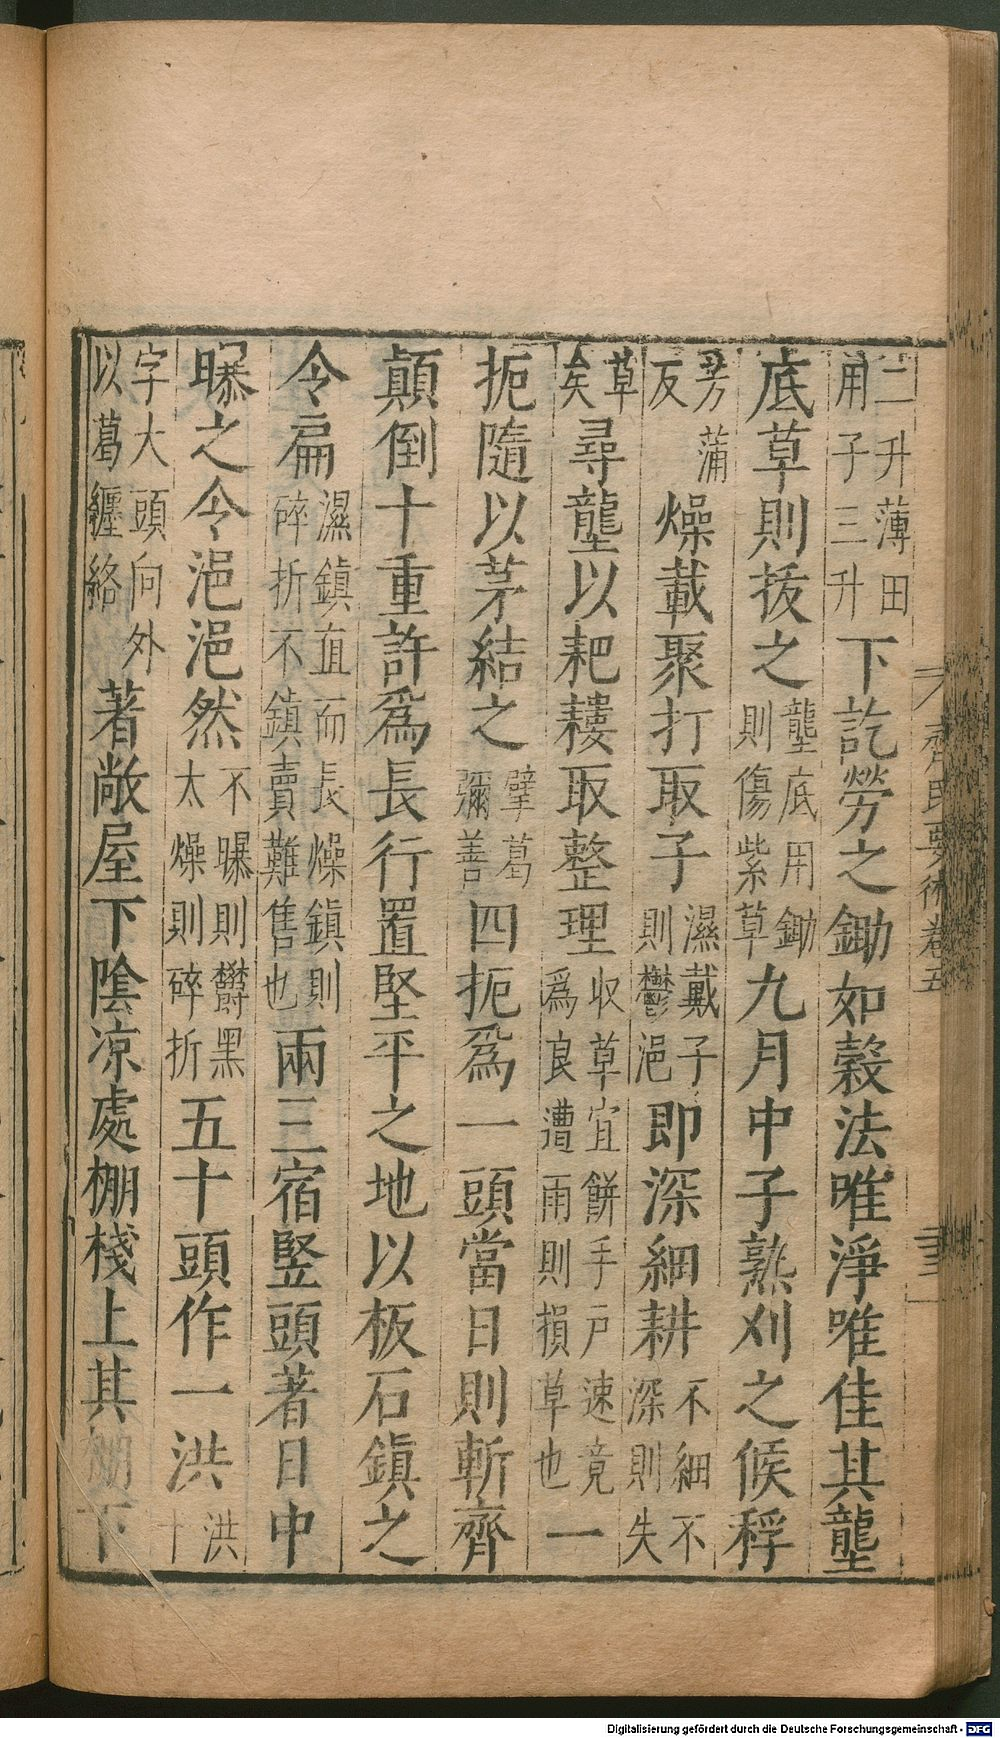 二升薄田用子三升下訖勞之鋤如穀法唯淨唯佳其壟
底草則拔之壟底用鋤則傷紫草九月中子熟刈之候稃
芳蒲反燥載聚打取子濕載子則鬱浥即深細耕不細不深則失
草矣尋壟以耙耬取整理收草宜餅手戸速竟爲良遭雨則損草也一
扼隨以茅結之擘葛彌善四扼爲一頭當日則斬齊
顛倒十重許爲長行置堅平之地以板石鎮之
令扁濕鎮直而長燥鎮則碎折不鎮賣難售也兩三宿竪頭著日中
曝之令浥浥然不曝則鬱黑太燥則碎折五十頭作一洪洪十
字大頭向外以葛纏絡著敞屋下陰凉處棚棧上其棚下
齊民要術卷五
Digitalisierung gefördert durch die Deutsche Forschungsgemeinschaft - DFG